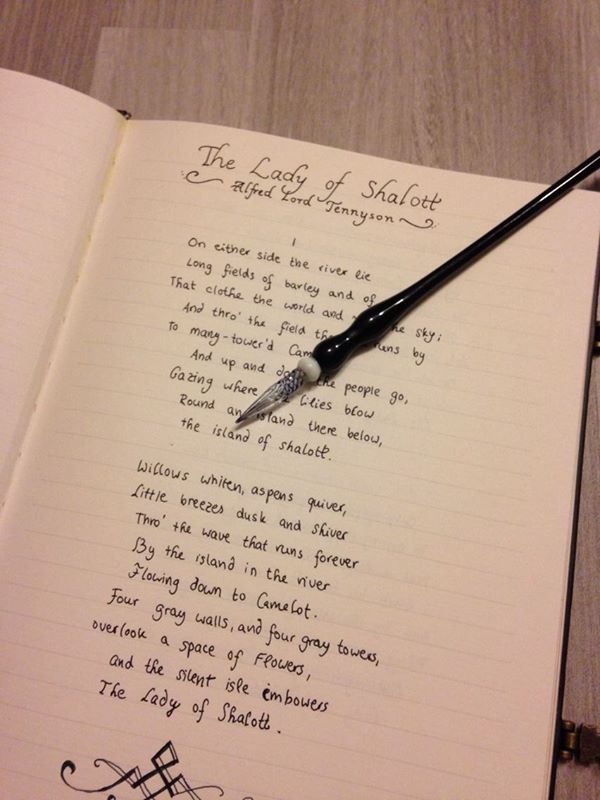 The Lady of Shalott
Alfred Lord Tennyson
1
On either side the river lie
Long fields of barley and of
That clothe the world and the sky;
And thro' the field the runs by
To many-tower'd
And up and the people go,
Gazing where lilies blow
Round an island there below,
the island of Shalott.
Willows whiten, aspens quiver,
Little breezes dusk and shiver
Thro' the wave that runs forever
By the island in the river
Flowing down to Camelot.
Four gray walls, and four gray towers,
overlook a space of Flowers,
and the silent isle embowers
The Lady of Shalott.